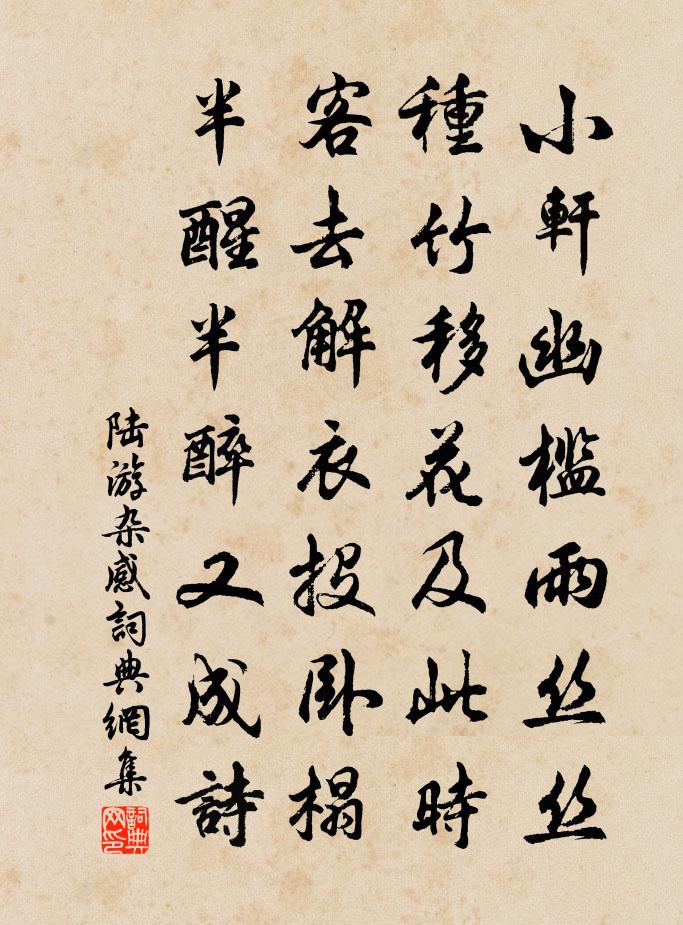 小軒幽檻雨丝丝
種竹移花及此時
客去解衣投卧榻
半醒半醉又成詩
陆游杂感詞典網集
詞典网印